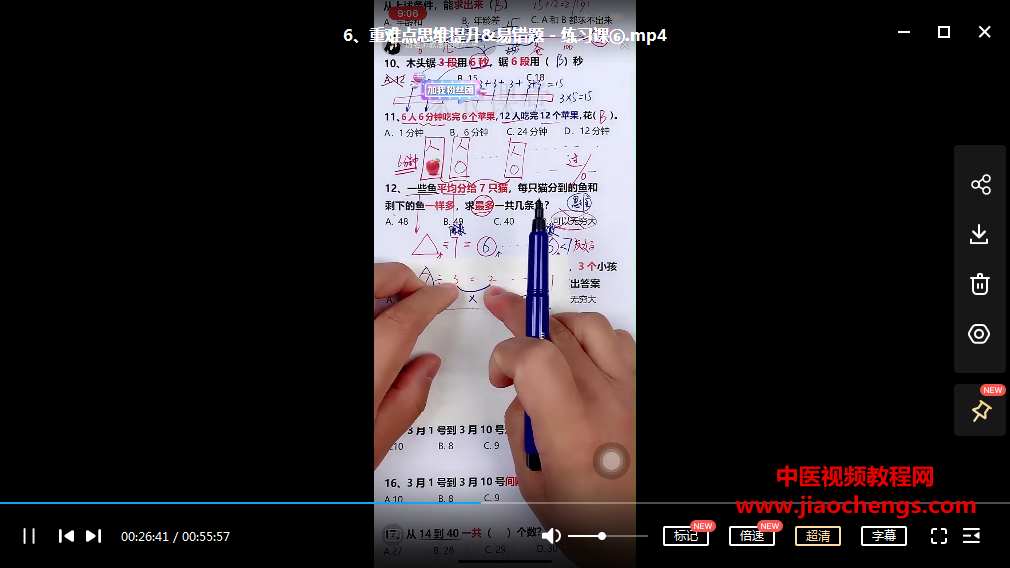 从上述条件，能求出来（B）
9:06
A. 年龄和 B. 年龄差 C. A 和 B 都求不出来
6、重难点思维提升&易错题 - 练习课⑥.mp4
10、木头锯 3 段用 6 秒，锯 6 段用（ B ）秒
A. 12 B. 15 C. 18
3+3+3+3+3=15
加我粉丝团
3×5=15
11、6 人 6 分钟吃完 6 个苹果，12 人吃完 12 个苹果，花（B）。
A. 1 分钟 B. 6 分钟 C. 24 分钟 D. 12 分钟
人 人 人
6分钟
12、一些鱼平均分给 7 只猫，每只猫分到的鱼和
剩下的鱼一样多，求最多一共几条鱼？
A. 48 B. 49 C. 40 可以无穷大
÷ 7 = 6 …… 6 < 7
，3 个小孩
÷ 5 = 2 … 1
出答案
无穷大
×
3 月 1 号到 3 月 10 号
10 B. 8 C. 9
NEW
16、3 月 1 号到 3 月 10 号间隔
A.10 B. 8 C. 9
中医视频教程网
www.jiaochengs.com
从 14 到 40 一共（ ）个数？
A.27 B. 28 C. 29 D. 30
00:26:41 / 00:55:57
标记 NEW
倍速 NEW
超清
字幕